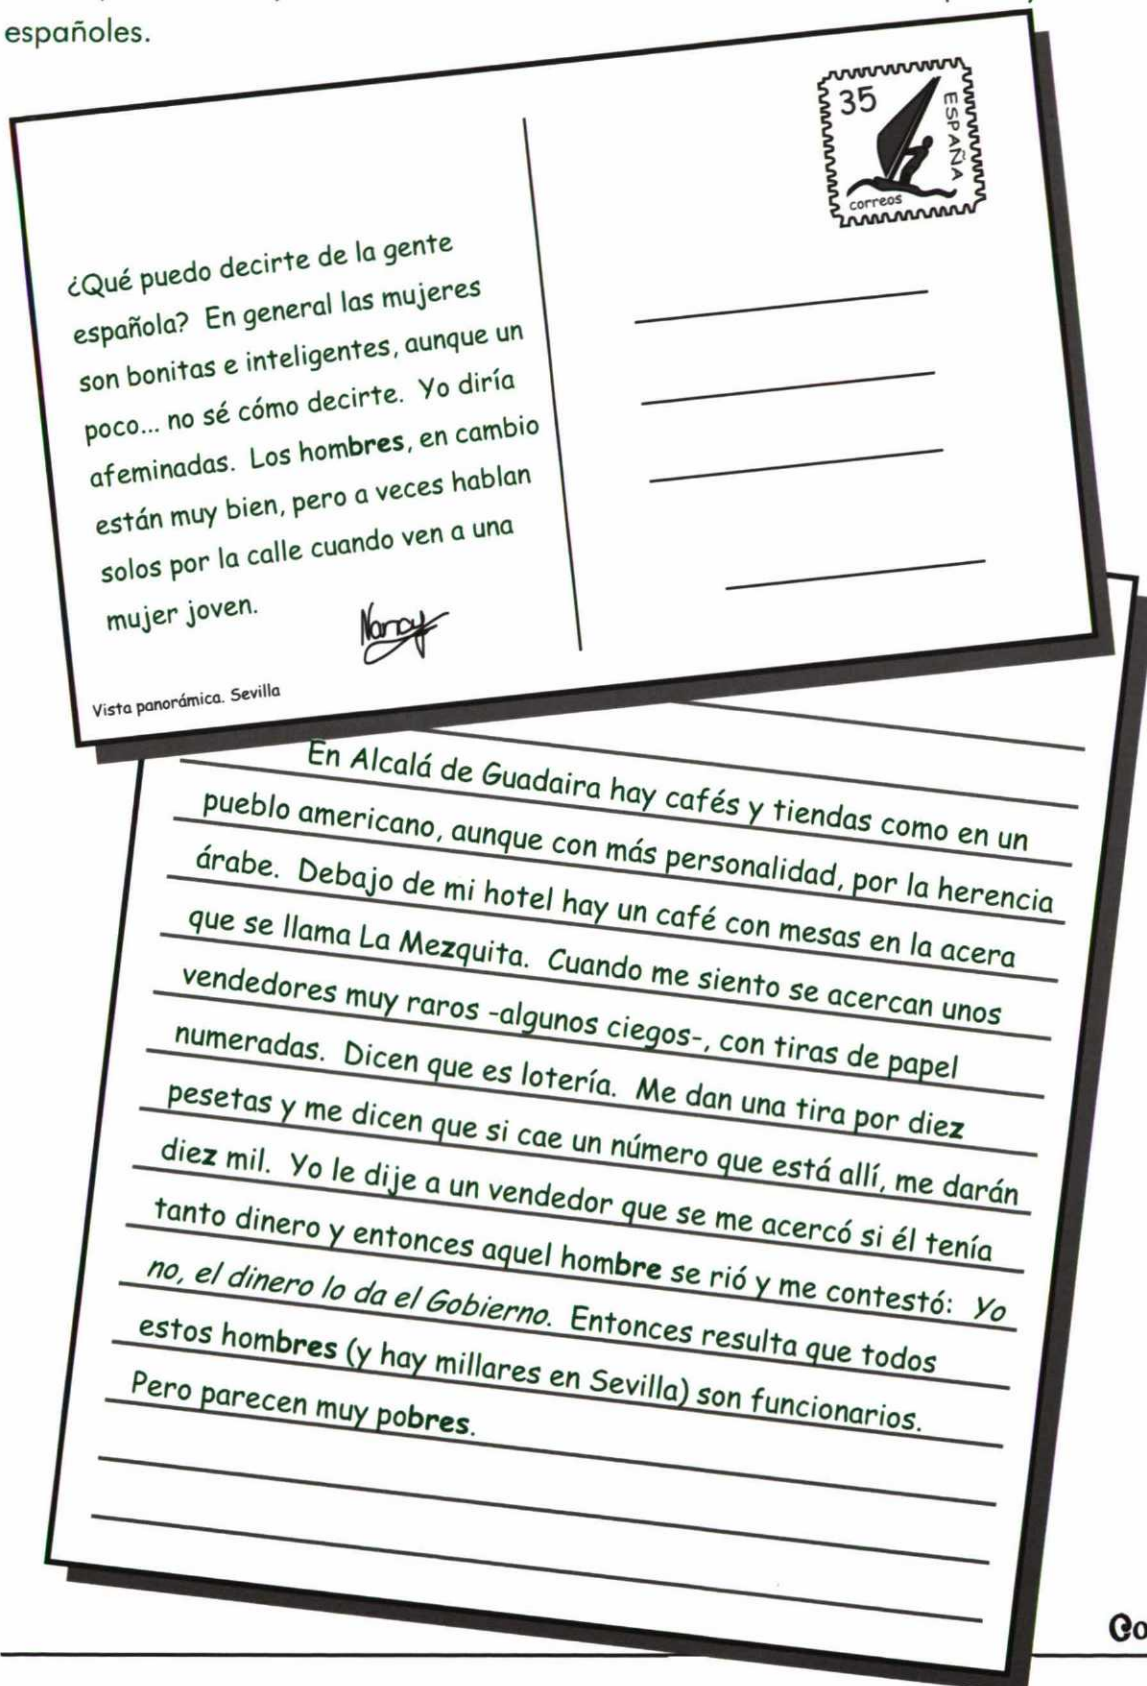 españoles.
35
ESPAÑA
correos
¿Qué puedo decirte de la gente
española? En general las mujeres
son bonitas e inteligentes, aunque un
poco... no sé cómo decirte. Yo diría
afeminadas. Los hombres, en cambio
están muy bien, pero a veces hablan
solos por la calle cuando ven a una
mujer joven.
Nancy
Vista panorámica. Sevilla
En Alcalá de Guadaira hay cafés y tiendas como en un
pueblo americano, aunque con más personalidad, por la herencia
árabe. Debajo de mi hotel hay un café con mesas en la acera
que se llama La Mezquita. Cuando me siento se acercan unos
vendedores muy raros -algunos ciegos-, con tiras de papel
numeradas. Dicen que es lotería. Me dan una tira por diez
pesetas y me dicen que si cae un número que está allí, me darán
diez mil. Yo le dije a un vendedor que se me acercó si él tenía
tanto dinero y entonces aquel hombre se rió y me contestó: Yo
no, el dinero lo da el Gobierno. Entonces resulta que todos
estos hombres (y hay millares en Sevilla) son funcionarios.
Pero parecen muy pobres.